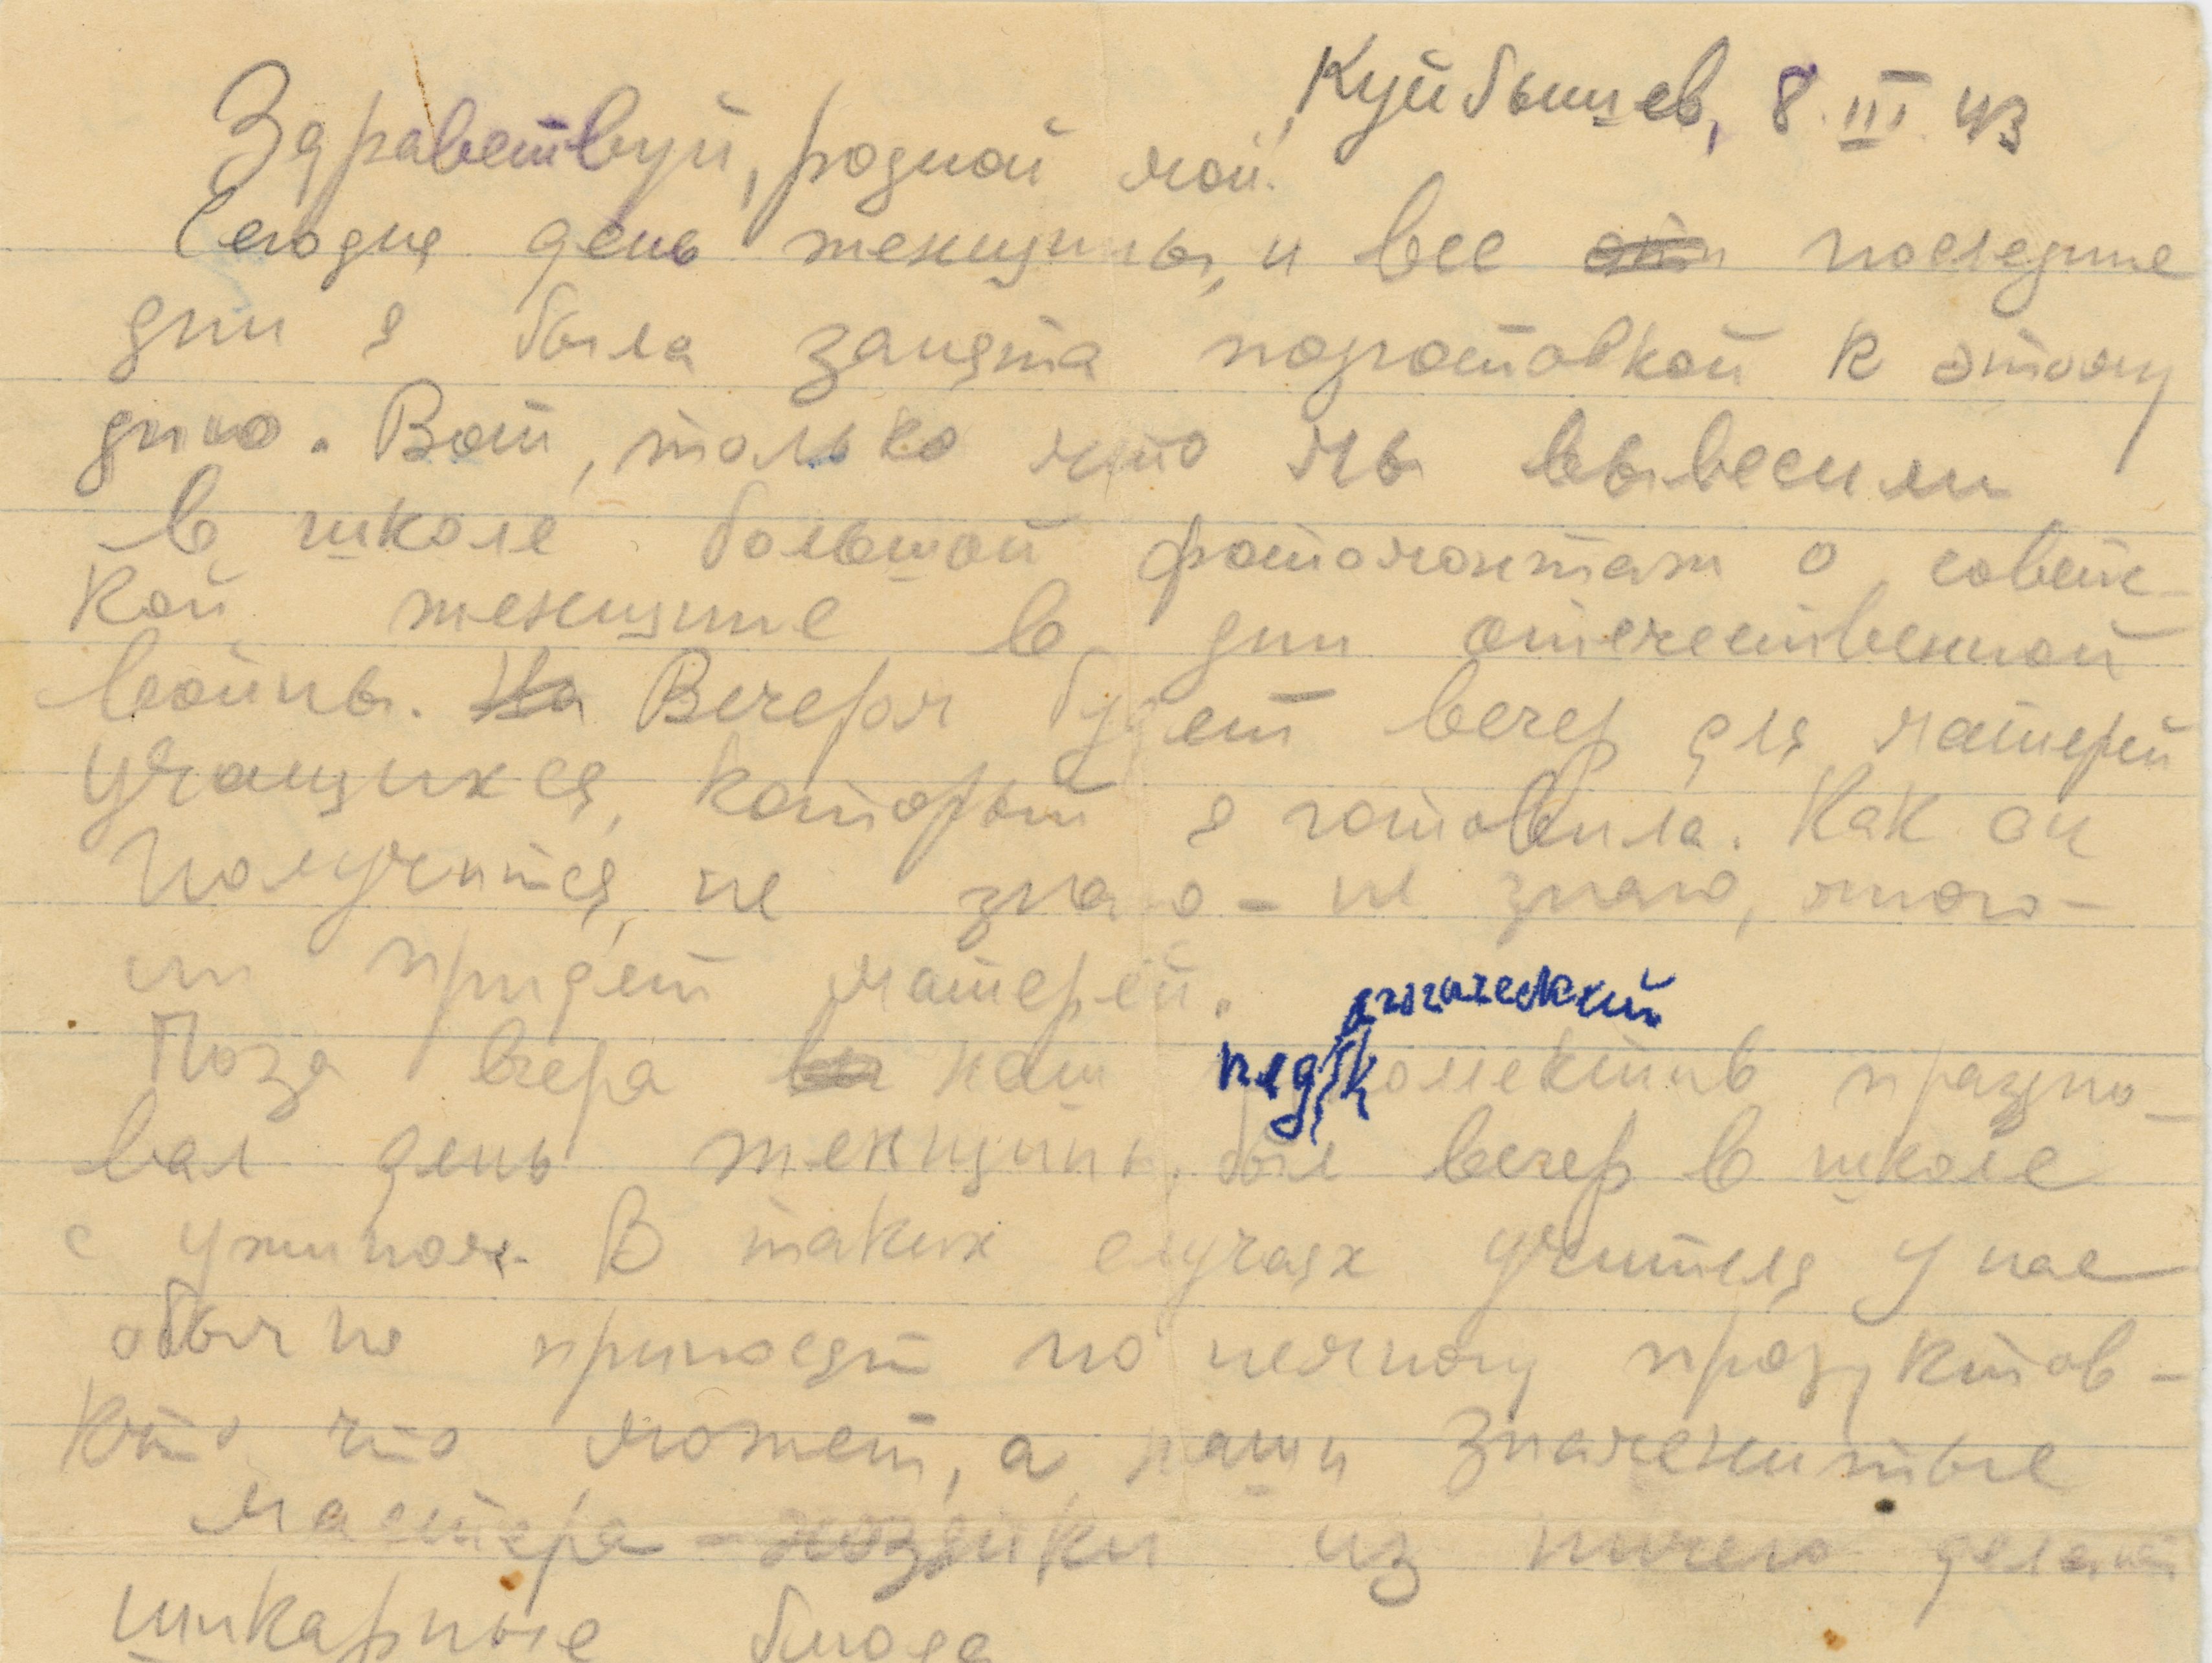 Куйбышев, 8.III 43
Здравствуй, родной мой.
Сегодня день женщины, и все последние
дни я была занята подготовкой к этому
дню. Вот, только что мы вывесили
в школе большой фотомонтаж о советс-
кой женщине в дни отечественной
войны. Вечером будет вечер для матерей
учащихся, который я готовила. Как он
получится, не знаю – не знаю, много-
ли придет матерей.
агогический
Поза вчера наш пед коллектив праздно-
вал день женщины. Был вечер в школе
с ужином. В таких случаях учителя у нас
обычно приносят по немногу продуктов –
кто что может, а наши знаменитые
мастера – хозяйки из ничего делают
шикарные блюда